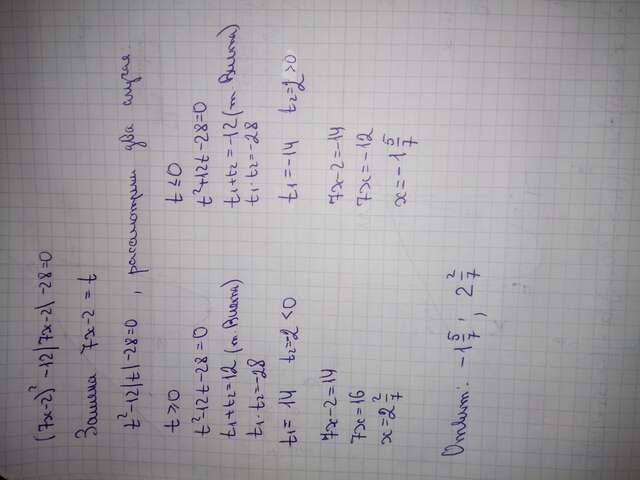 (7x-2)² -12|7x-2| -28=0
Замена 7x-2 = t
t²-12|t|-28=0 , рассмотрим два случая
t⩾0
t²-12t-28=0
t₁+t₂=12 (т Виета)
t₁·t₂=-28
t₁= 14 t₂=-2 <0
7x-2=14
7x=16
x=2 2/7
t≤0
t²+12t-28=0
t₁+t₂=-12 (т Виета)
t₁·t₂=-28
t₁=-14 t₂=2>0
7x-2=-14
7x=-12
x=-1 5/7
Ответ: -1 5/7 ; 2 2/7